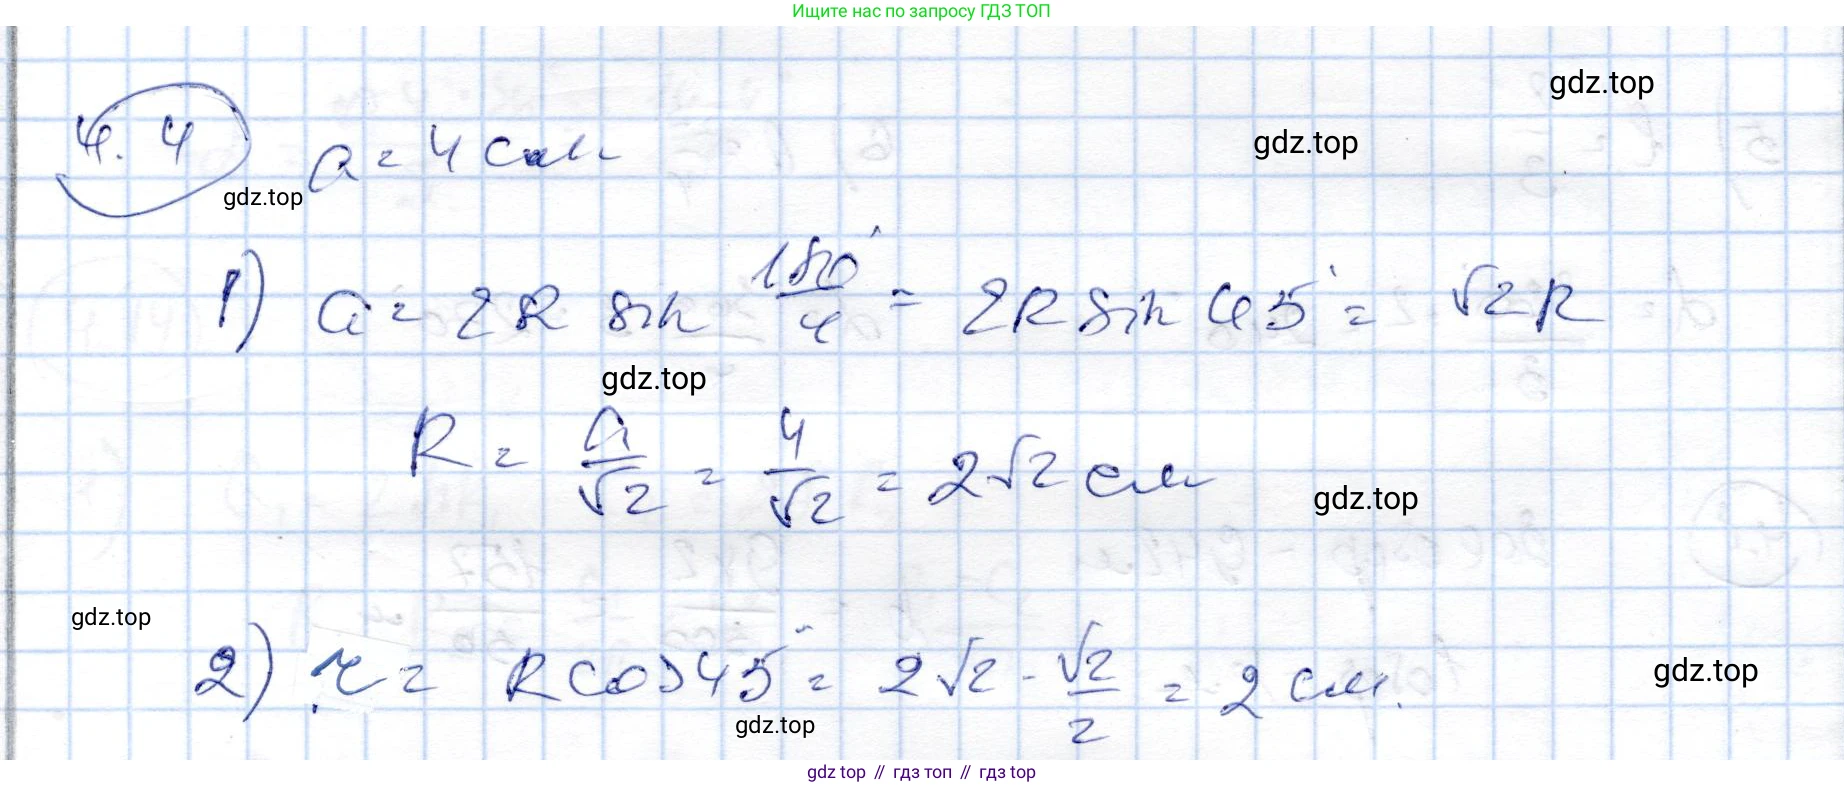 Ищите нас по запросу ГДЗ ТОП
gdz.top
4.4 a = 4 см
gdz.top
gdz.top
1) a = 2R sin 180°/4 = 2R sin 45° = √2R
gdz.top
R = a/√2 = 4/√2 = 2√2 см
gdz.top
gdz.top
2) r = R cos 45° = 2√2 · √2/2 = 2 см.
gdz.top
gdz.top
gdz top // гдз топ // гдз top